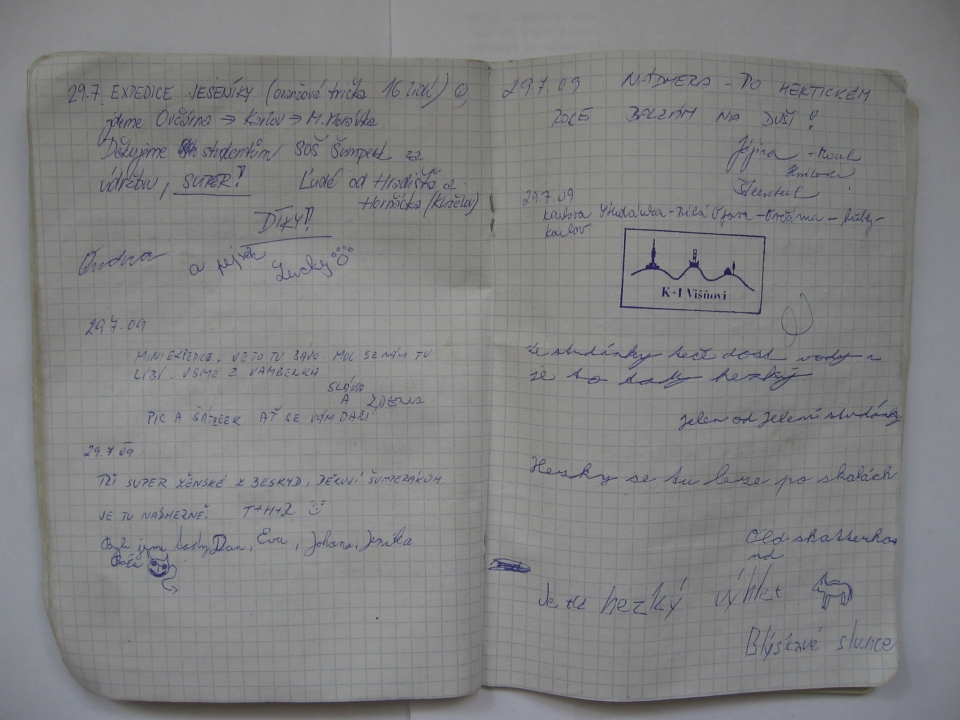 29.7. EXPEDICE JESENÍKY (oranžová trička 16 lidí)
jdeme Ovčárna → Karlov → M. Morávka
Děkujeme studentům SOŠ Šumperk za
údržbu, SUPER! Lidé od Hradiště a
Horňácka (Kuželov)
DÍKY!!
Ondra a pejsek Lucky
29.7.09
MINIEXPEDICE, JE TO TU BÁVO. MOC SE NÁM TU
LÍBÍ. JSME Z VAMBERKA
SLÁVA
A ZDENIS
PIC A ŠÁTEČEK AŤ SE VÁM DAŘÍ
29.7.09
TŘI SUPER ŽENSKÉ Z BESKYD, DĚKUJÍ ŠUMPERÁKŮM.
JE TU NÁDHERNĚ! T+H+Z
Byli jsme tady Dan, Eva, Johana, Jenika
29.7.09 NÁDHERA - PO HEKTICKÉM
ROCE BALZÁM NA DUŠI!!
29.7.09
Karlova Studánka - Bílá Opava - Ovčárna -
Karlov
K+I Višňovi
Ze studánky teče dost vody a
je to tady hezký
jelen od Jelení studánky
Hezky se tu leze po skalách
Old shatterha
nd
Je tu hezký výhlet
Blýskavé slunce